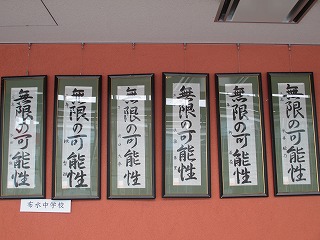 無限の可能性
無限の可能性
無限の可能性
無限の可能性
無限の可能性
無限の可能性
布水中学校